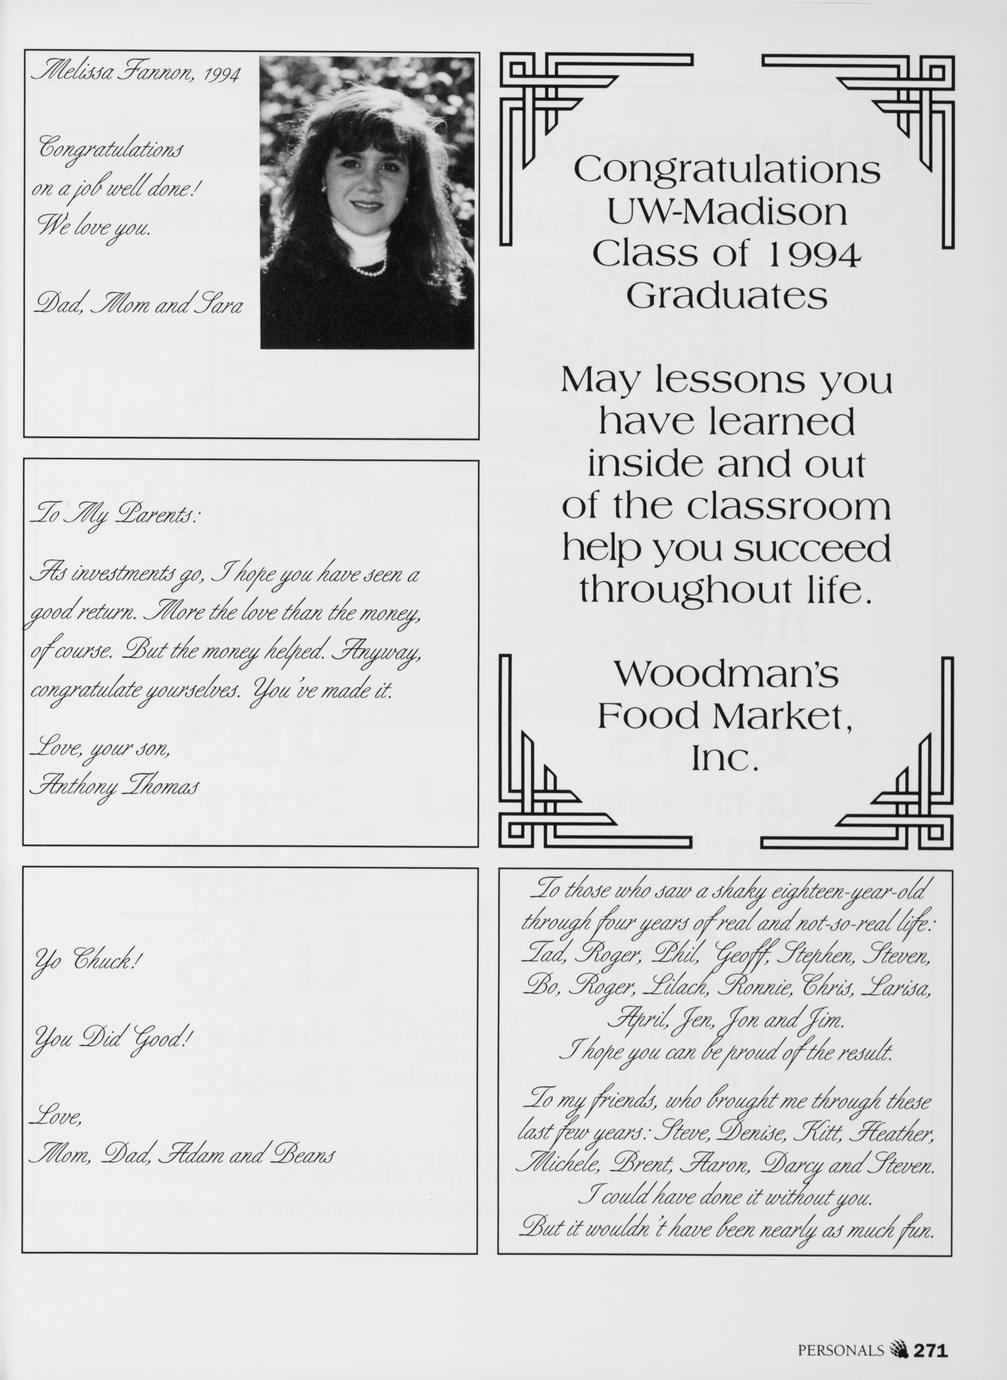 Melissa Fannon, 1994
Congratulations
on a job well done!
We love you.
Dad, Mom and Sara
To My Parents:
As investments go, I hope you have seen a
good return. More the love than the money,
of course. But the money helped. Anyway,
congratulate yourselves. You've made it.
Love, your son,
Anthony Thomas
Yo Chuck!
You Did Good!
Love,
Mom, Dad, Adam and Beans
Congratulations
UW-Madison
Class of 1994
Graduates
May lessons you
have learned
inside and out
of the classroom
help you succeed
throughout life.
Woodman's
Food Market,
Inc.
To those who saw a shaky eighteen-year-old
through four years of real and not-so-real life:
Tad, Roger, Phil, Geoff, Stephen, Steven,
Bo, Roger, Lilach, Ronnie, Chris, Larisa,
April, Jen, Jon and Jim.
I hope you can be proud of the result.
To my friends, who brought me through these
last few years: Steve, Denise, Kitt, Heather,
Michele, Brent, Aaron, Darcy and Steven.
I could have done it without you.
But it wouldn't have been nearly as much fun.
PERSONALS 271